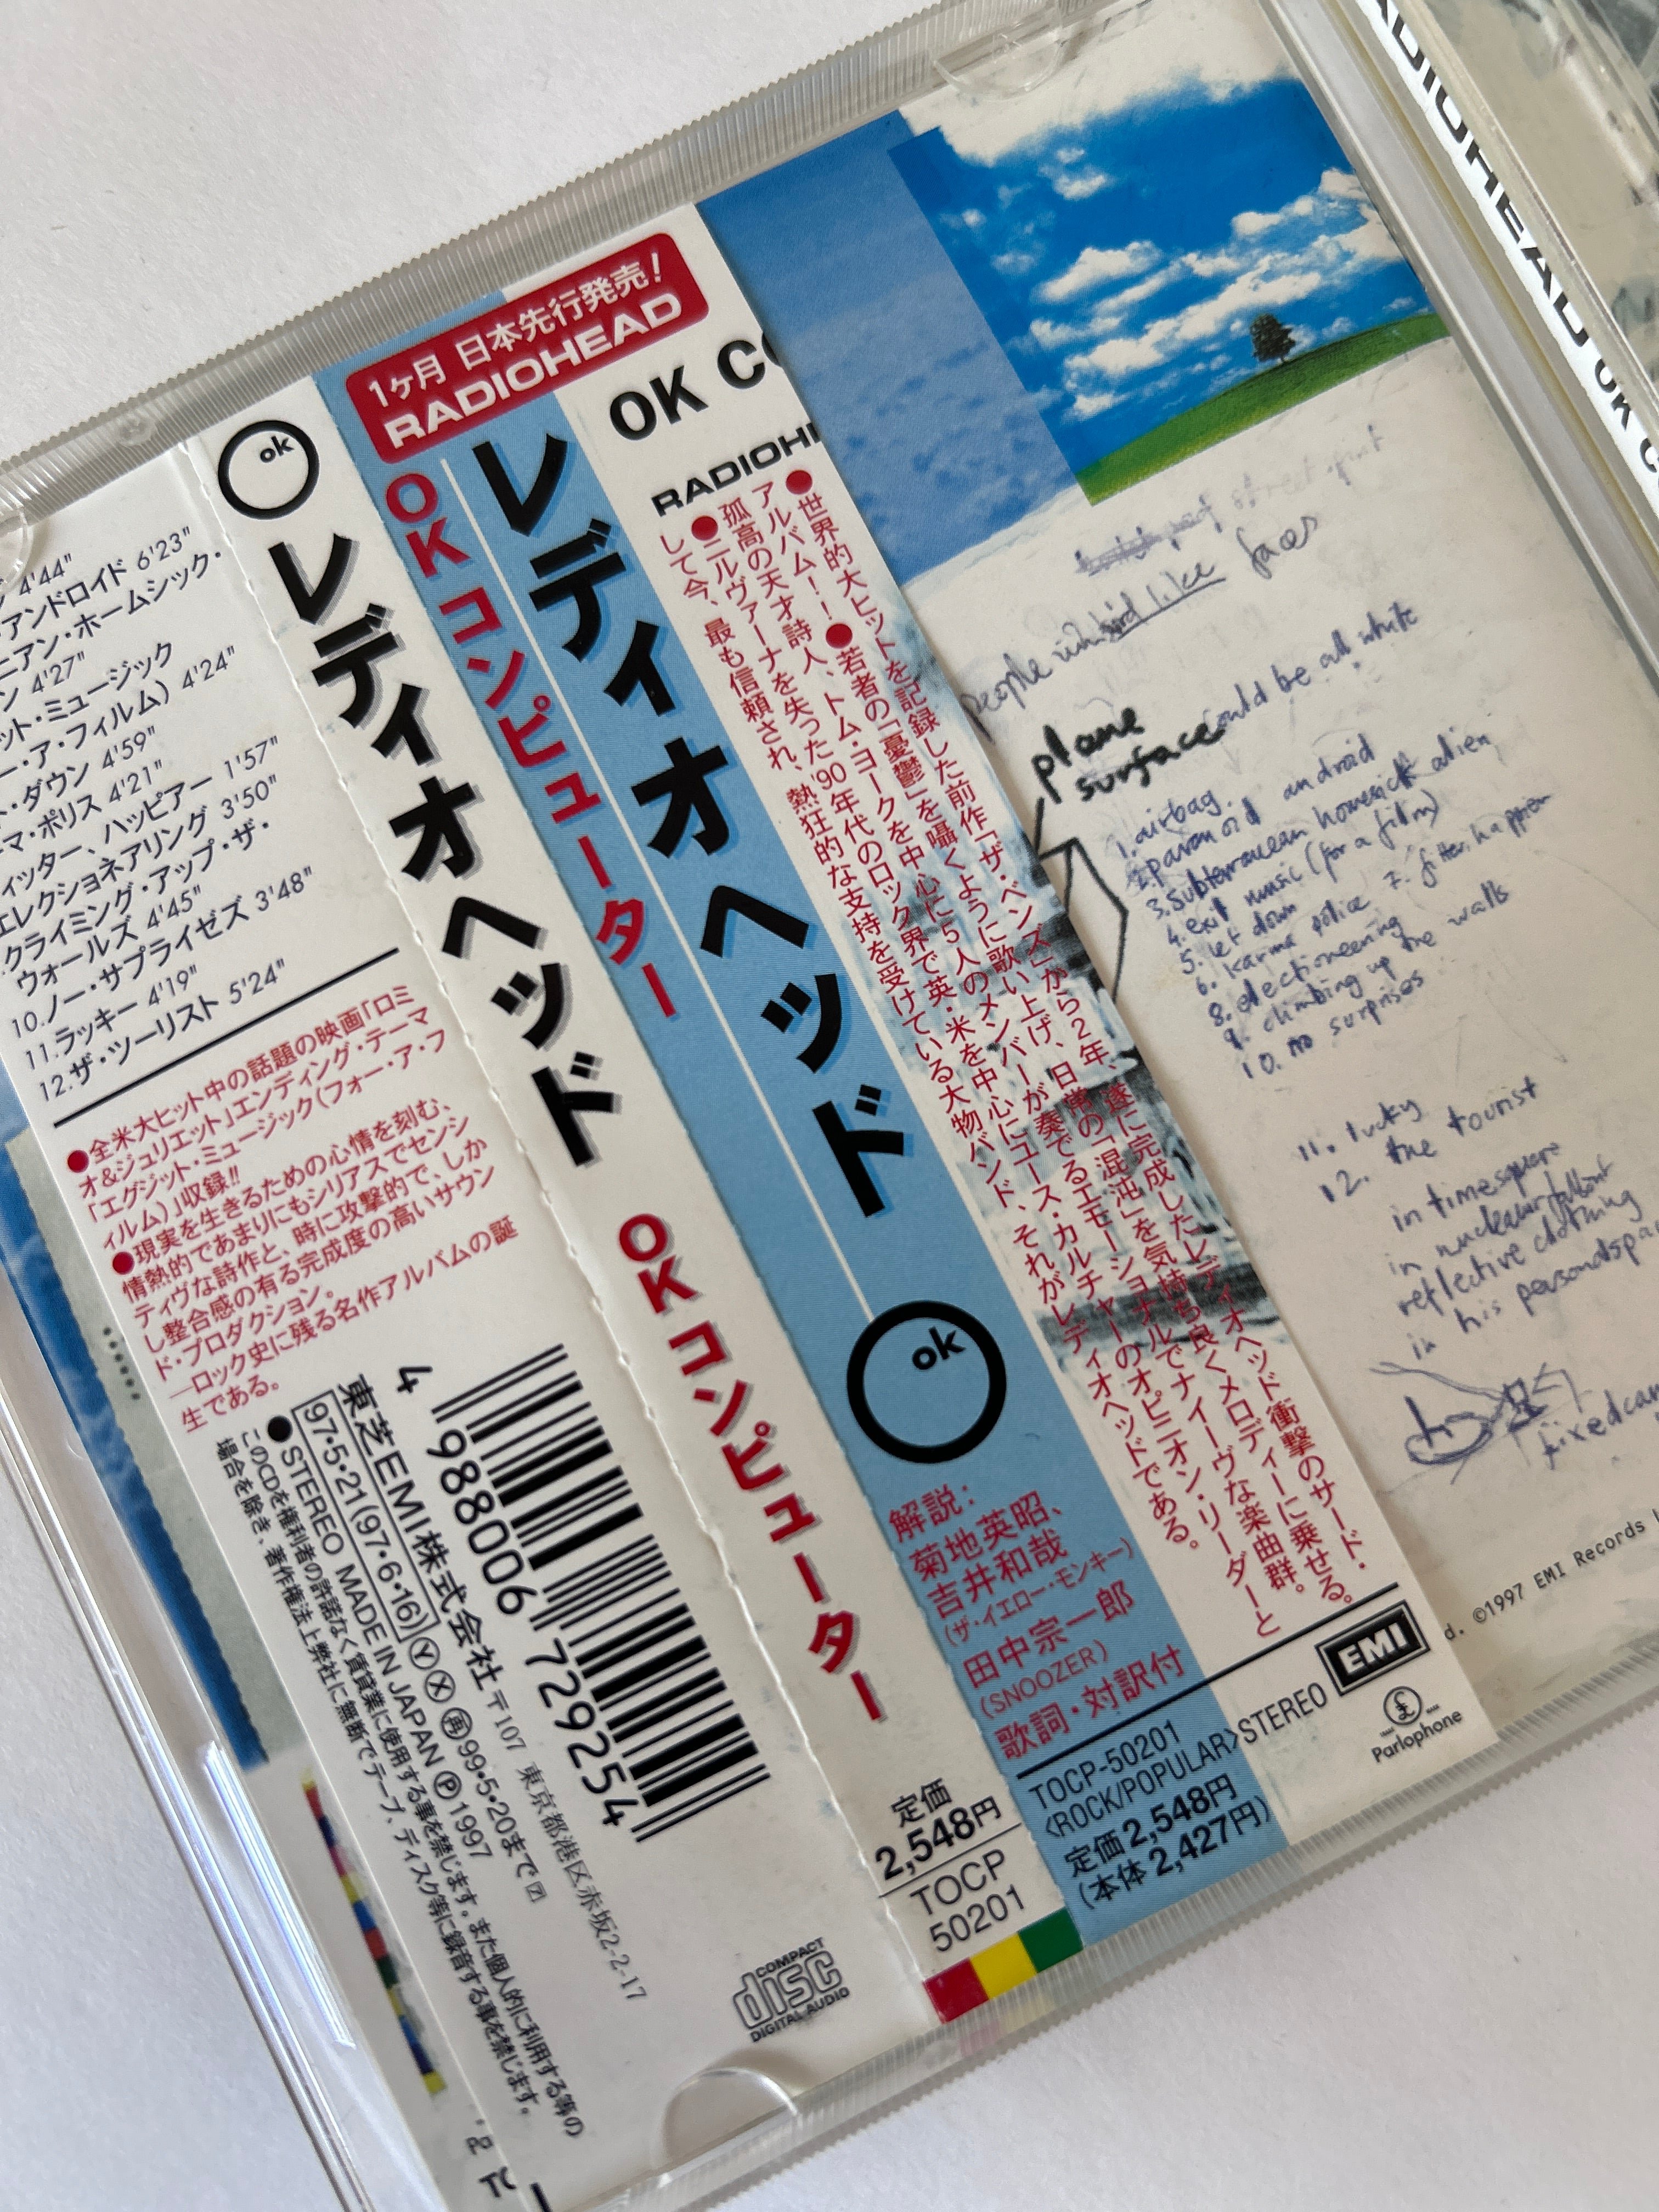 4'44"
アンドロイド 6'23"
ニアン・ホームシック・
ン 4'27"
ット・ミュージック
ー・ア・フィルム) 4'24"
・ダウン 4'59"
マ・ポリス 4'21"
ィッター、ハッピアー 1'57"
エレクショネアリング 3'50"
クライミング・アップ・ザ・
ウォールズ 4'45"
10.ノー・サプライゼズ 3'48"
11.ラッキー 4'19"
12.ザ・ツーリスト 5'24"
●全米大ヒット中の話題の映画「ロミ
オ&ジュリエット」エンディング・テーマ
「エグジット・ミュージック(フォー・ア・フ
ィルム)」収録!!
●現実を生きるための心情を刻む、
情熱的であまりにもシリアスでセンシ
ティヴな詩作と、時に攻撃的で、しか
し整合感の有る完成度の高いサウン
ド・プロダクション。
―ロック史に残る名作アルバムの誕
生である。
4 988006 729254
東芝EMI株式会社 〒107 東京都港区赤坂2-2-17
97・5・21(97・6・16) Y X 再 99・5・20まで
●STEREO MADE IN JAPAN Ⓟ1997
このCDを権利者の許諾なく賃貸業に使用する事を禁じます。また個人的に利用する等の
場合を除き、著作権法上弊社に無断でテープ、ディスク等に録音する事を禁じます。
COMPACT
disc
DIGITAL AUDIO
ok
レディオヘッド
OK コンピューター
定価
2,548円
TOCP
50201
1ヶ月 日本先行発売!
RADIOHEAD
OK コンピューター
レディオヘッド
ok
解説:
菊地英昭、
吉井和哉
(ザ・イエロー・モンキー)
田中宗一郎
(SNOOZER)
歌詞・対訳付
TOCP-50201
<ROCK/POPULAR>STEREO
定価2,548円
(本体2,427円)
OK CO
RADIOH
●世界的大ヒットを記録した前作「ザ・ベンズ」から2年、遂に完成したレディオヘッド衝撃のサード・
アルバム!! ●若者の「憂鬱」を囁くように歌い上げ、日常の「混沌」を気持ち良くメロディーに乗せる。
孤高の天才詩人、トム・ヨークを中心に5人のメンバーが奏でるエモーショナルでナイーヴな楽曲群。
●ニルヴァーナを失った'90年代のロック界で英・米を中心にユース・カルチャーのオピニオン・リーダーと
して今、最も信頼され、熱狂的な支持を受けている大物バンド、それがレディオヘッドである。
EMI
Parlophone
like faces
plane
surface could be all white
1. airbag.
2. paranoid android
3. subterranean homesick alien
4. exit music (for a film)
5. let down
6. karma police 7. fitter happier
8. electioneering
9. climbing up the walls
10. no surprises
11. lucky
12. the tourist
in timesquare
in nuclear fallout
reflective clothing
in his personal spa
fixed cam
d. ©1997 EMI Records L
RADIOHEAD OK C